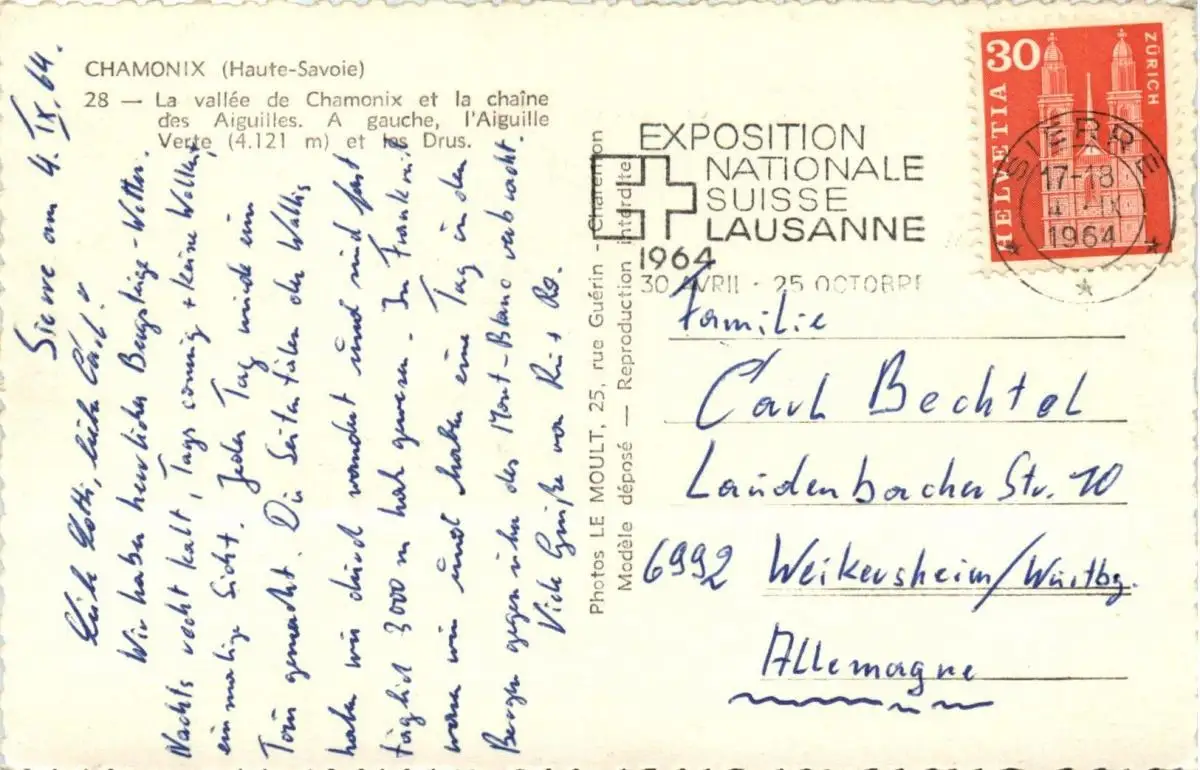 CHAMONIX (Haute-Savoie)
28 — La vallée de Chamonix et la chaîne
des Aiguilles. A gauche, l'Aiguille
Verte (4.121 m) et les Drus.
Sierre am 4. IX. 64.
Liebe Lotti, lieber Carl!
Wir haben herrliches Bergsteige-Wetter.
Nachts recht kalt, Tags sonnig + keine Wolken,
einmalige Sicht. Jeden Tag wird ein
Tour gemacht. Die Seitentäler des Wallis
haben wir durchwandert und sind fast
täglich 3000 m hoch gewesen. In Frankreich
waren wir und haben einen Tag in den
Bergen gegenüber des Mont-Blanc verbracht.
Viele Grüße von
Photos LE MOULT, 25, rue Guérin - Charenton
Modèle déposé — Reproduction interdite
EXPOSITION
NATIONALE
SUISSE
LAUSANNE
1964
30 AVRIL - 25 OCTOBRE
30
ZÜRICH
HELVETIA
SIERRE
17-18
4.-IX
1964
Familie
Carl Bechtel
Laudenbacher Str. 10
6992 Weikersheim/Württbg.
Allemagne